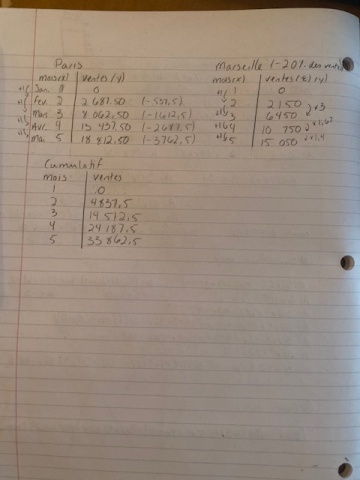 Paris
mois(x) ventes (y)
Jan. 0
Fev. 2 2 687.50 (-537,5)
Mar. 3 8 062.50 (-1612,5)
Avr. 4 13 437.50 (-2687,5)
Mai 5 18 812.50 (-3762,5)
Marseille (-20% des ventes
mois(x) ventes (€) (y)
+1 1 0
2 2150
+1 3 6450 +3
+1 4 10 750
+1 5 15 050 +1,4
Cumulatif
mois ventes
1 0
2 4837,5
3 14 512,5
4 24 187,5
5 33 862,5